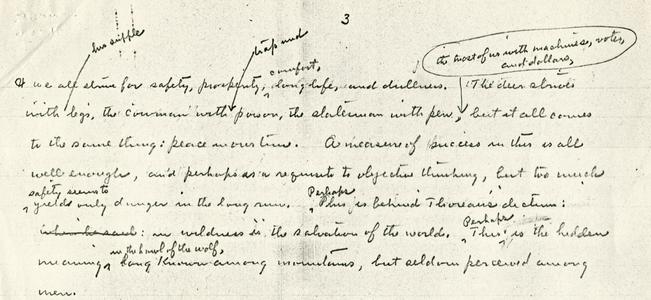 3
his supple
trap and
the most of us with machines, votes,
and dollars,
comfort,
We all strive for safety, prosperity, long life, and dullness. The deer strives
with legs, the cowman with poison, the statesman with pen, but it all comes
to the same thing: peace in our time. A measure of success in this is all
well enough, and perhaps is a requisite to objective thinking, but too much
safety seems to
Perhaps
yields only danger in the long run. This is behind Thoreau's dictum:
Perhaps
which he said: in wildness is the salvation of the world. This is the hidden
in the howl of the wolf,
meaning long known among mountains, but seldom perceived among
men.